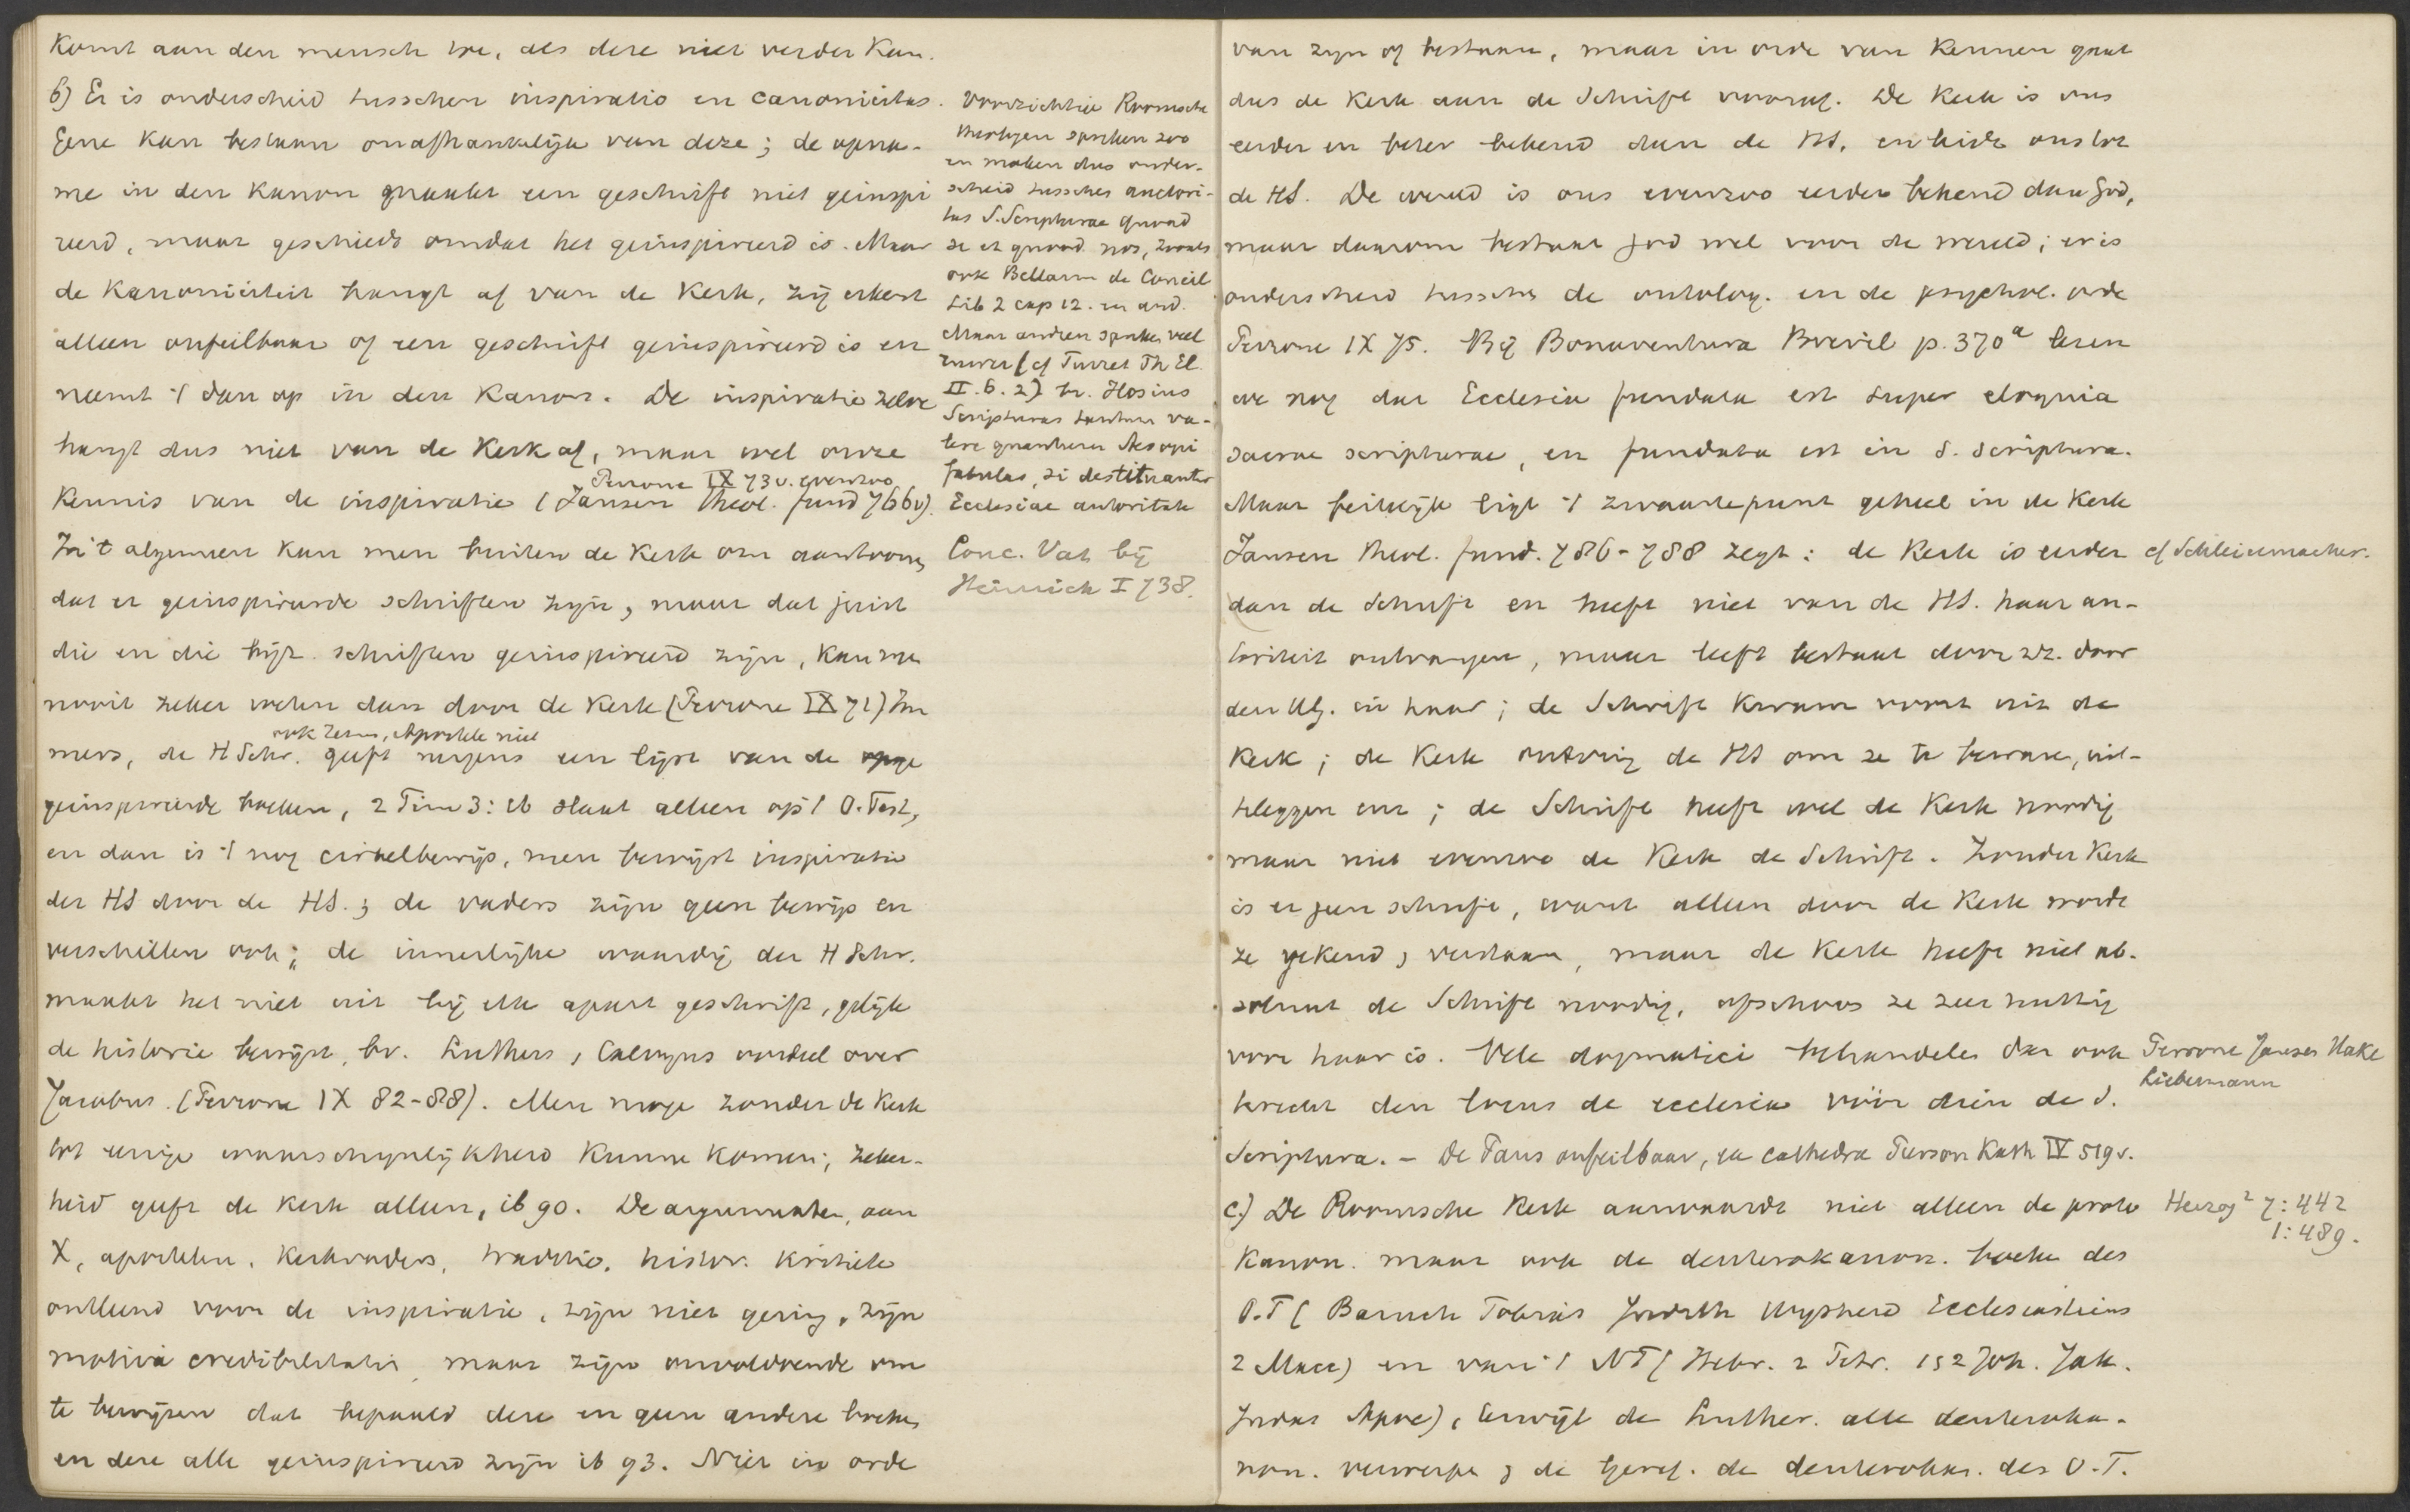 komt aan den mensch toe, als deze niet verder kan.
b) Er is onderscheid tusschen inspiratio en canonicitas.
Gene kan bestaan onafhankelijk van deze; de opna-
me in den kanon maakt een geschrift niet geinspi
reerd, maar geschiedt omdat het geïnspireerd is. Maar
de kanoniciteit hangt af van de kerk, zij erkent
alleen onfeilbaar of een geschrift geinspireerd is en
neemt 't dan op in den kanon. De inspiratie zelve
hangt dus niet van de kerk af, maar wel onze
Perrone IX 73v. evenzoo
kennis van de inspiratie (Jansen theol. fund 766v).
In 't algemeen kan men buiten de kerk om aantoonen
dat er geinspireerde schriften zijn, maar dat juist
die en die bijz. schriften geinspireerd zijn, kan men
nooit zeker weten dan door de kerk (Perrone IX 71) Im
ook Jezus, Apostelen niet
mers, de H Schr. geeft nergens een lijst van de
geinspireerde boeken, 2 Tim 3:16 slaat alleen op 't O. Test,
en dan is 't nog cirkelbewijs, men bewijst inspiratie
der HS door de HS.; de vaders zijn geen bewijs en
verschillen ook; de innerlijke waardij der H Schr.
maakt het niet uit bij elk apart geschrift, gelijk
de historie bewijst, bv. Luthers, Calvijns oordeel over
Jacobus. (Perrone IX 82-88). Men moge zonder de kerk
tot eenige waarschijnlijkheid kunnen komen; zeker-
heid geeft de kerk alleen, ib 90. De argumenten, aan
X, apostelen, kerkvaders, traditie, histor. kritiek
ontleend voor de inspiratie, zijn niet gering, zijn
motiva credibilitatis maar zijn onvoldoende om
te bewijzen dat bepaald deze en geen andere boeken
en deze alle geinspireerd zijn ib 93. Niet in orde
Voorzichtige Roomsche
theologen spreken zoo
en maken dus onder-
scheid tusschen auctori-
tas S. Scripturae quoad
se et quoad nos, zooals
ook Bellarm de Concil
Lib 2 cap 12. en and.
Maar andren spraken veel
ruwer (cf Turret Th El.
II.6.2) bv. Hosius
Scripturas tantum va-
lere quantum Aesopi
fabulas, si destituantur
Ecclesiae autoritate
Conc. Vat. bij
Heinrich I 738.
van zijn of bestaan, maar in orde van kennen gaat
dus de kerk aan de Schrift vooraf. De kerk is ons
eerder en beter bekend dan de HS. en leidt ons tot
de HS. De wereld is ons evenzoo eerder bekend dan God,
maar daarom bestaat God wel voor de wereld; er is
onderscheid tusschen de ontolog. en de psychol. orde
Perrone IX 75. Bij Bonaventura Brevil p. 370ª lezen
we nog dat Ecclesia fundata est super eloquia
sacrae scripturae, en fundata est in S. Scriptura.
Maar feitelijk ligt 't zwaartepunt geheel in de kerk
Jansen theol. fund. 786-788 zegt: de kerk is eerder
dan de Schrift en heeft niet van de HS. haar au-
toriteit ontvangen, maar leeft bestaat door zz. door
den HG. in haar; de Schrift kwam voort uit de
kerk; de kerk ontving de HS om ze te bewaren, uit-
teleggen enz; de Schrift heeft wel de kerk noodig
maar niet evenzoo de kerk de Schrift. Zonder kerk
is er geen schrift, want alleen door de kerk wordt
ze gekend, verstaan, maar de kerk heeft niet ab-
soluut de Schrift noodig, ofschoon ze zeer nuttig
voor haar is. Vele dogmatici behandelen dan ook
terecht den locus de ecclesia vóór dien de S.
Scriptura. – De Paus onfeilbaar, ex cathedra Perrone Kath IV 519v.
c.) De Roomsche kerk aanvaardt niet alleen de proto
kanon. maar ook de deuterokanon. boeken des
O.T ( Baruch Tobias Judith Wysheid Ecclesiasticus
2 Macc) en van 't NT ( Hebr. 2 Petr. 1 & 2 Joh. Jak.
Judas Apoc), terwijl de Luther. alle deuteroka-
non. verwerpen, de Geref. de deuterokan. des O.T.
cf Schleiermacher.
Perrone Jansen Hake
Liebermann
Herzog² 7:442
1:489.